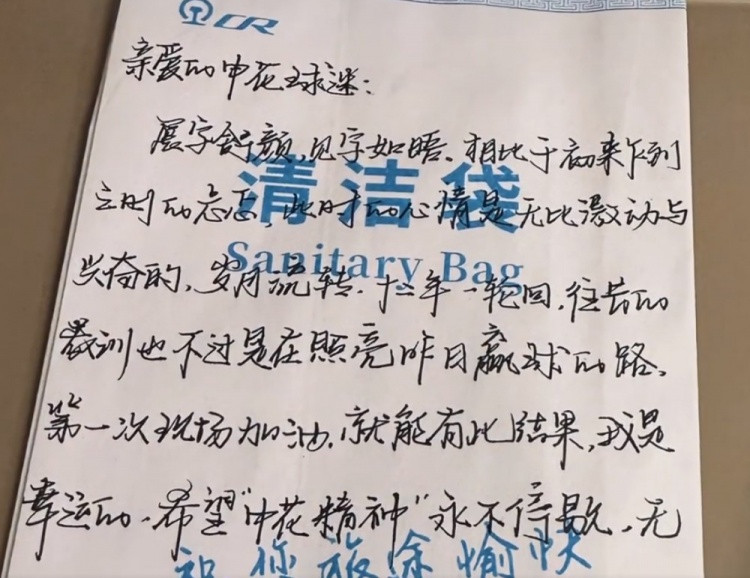 CR
亲爱的中花球迷:
展字舒颜,见字如晤。相比于初来乍到
之时的忐忑,此时的心情是无比激动与
清洁袋
Sanitary Bag
兴奋的,岁月流转,十二年一轮回,往昔的
教训也不过是在照亮昨日赢球的路。
第一次现场加油,就能有此结果,我是
幸运的。希望"中花精神"永不停歇,无
祝您旅途愉快